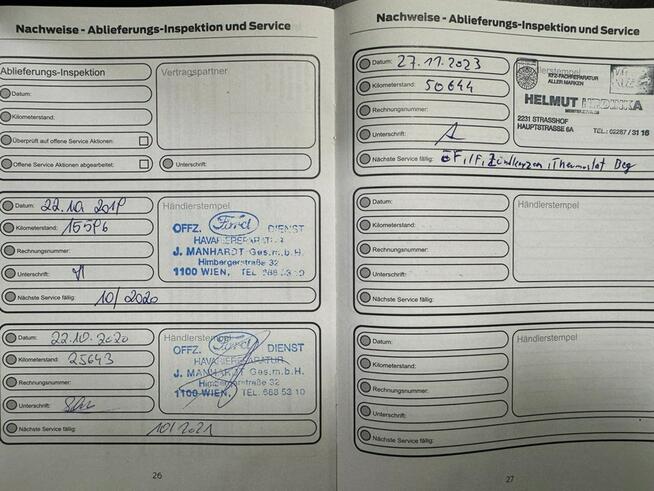 Nachweise - Ablieferungs-Inspektion und Service
Ablieferungs-Inspektion
Datum:
Kilometerstand:
Überprüft auf offene Service Aktionen:
Offene Service Aktionen abgearbeitet:
Vertragspartner:
Unterschrift:
Datum: 22.10.2019
Kilometerstand: 15596
Rechnungsnummer:
Unterschrift:
Nächste Service fällig: 10/2020
Händlerstempel:
OFFZ. Ford DIENST
HAVARIEREPARATUR
J. MANHARDT Ges.m.b.H.
Himbergerstraße 32
1100 WIEN, TEL 688 53 10
Datum: 22.10.2020
Kilometerstand: 25643
Rechnungsnummer:
Unterschrift:
Nächste Service fällig: 10/2021
Händlerstempel:
OFFZ. Ford DIENST
HAVARIEREPARATUR
J. MANHARDT Ges.m.b.H.
Himbergerstraße 32
1100 WIEN, TEL. 688 53 10
26
Nachweise - Ablieferungs-Inspektion und Service
Datum: 27.11.2023
Kilometerstand: 50644
Rechnungsnummer:
Unterschrift:
Nächste Service fällig: ÖF, IF, Zündkerzen, Thermostat Beg
Händlerstempel
KFZ-FACHREPARATUR
ALLER MARKEN
HELMUT HRDINKA
2231 STRASSHOF
HAUPTSTRASSE 6A TEL.: 02287 / 31 16
Datum:
Kilometerstand:
Rechnungsnummer:
Unterschrift:
Nächste Service fällig:
Händlerstempel:
Datum:
Kilometerstand:
Rechnungsnummer:
Unterschrift:
Nächste Service fällig:
Händlerstempel:
27